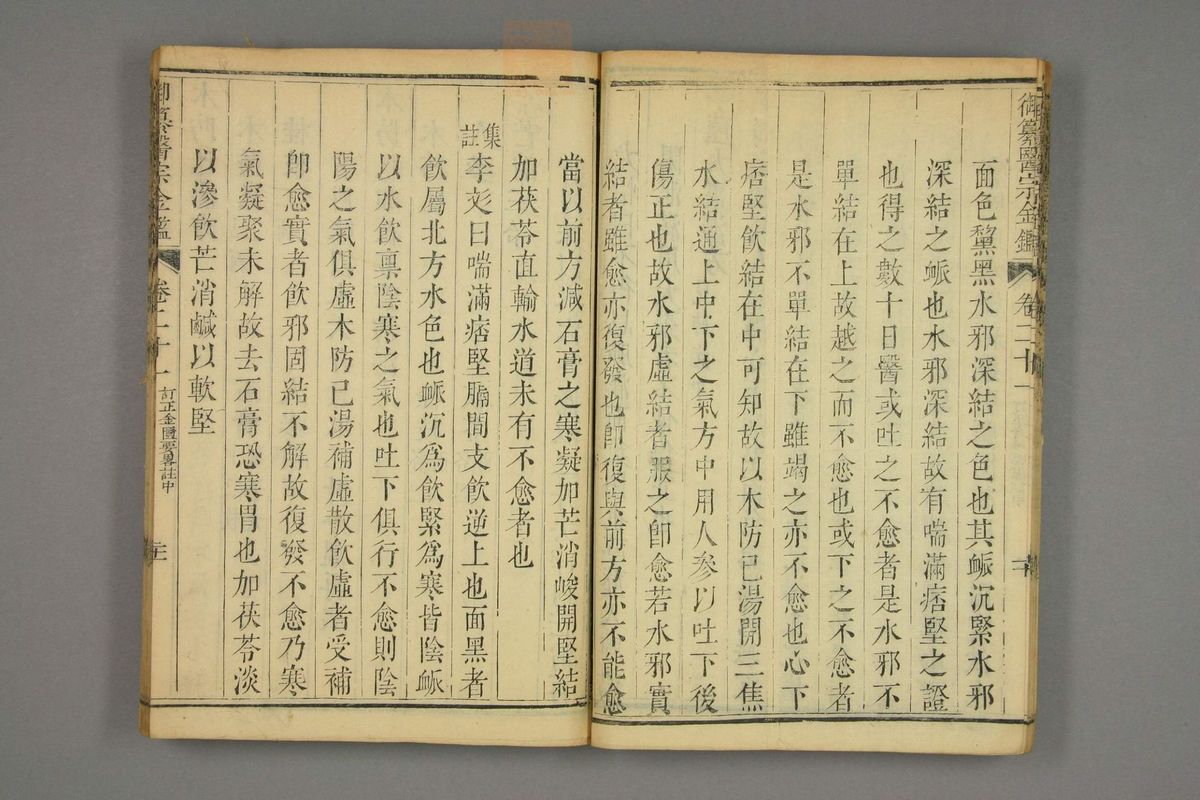 御纂醫宗金鑑 卷二十一
面色黧黑水邪深結之色也其脈沉緊水邪
深結之脈也水邪深結故有喘滿痞堅之證
也得之數十日醫或吐之不愈者是水邪不
單結在上故越之而不愈也或下之不愈者
是水邪不單結在下雖竭之亦不愈也心下
痞堅飲結在中可知故以木防已湯開三焦
水結通上中下之氣方中用人參以吐下後
傷正也故水邪虛結者服之卽愈若水邪實
結者雖愈亦復發也卽復與前方亦不能愈
當以前方減石膏之寒凝加芒消峻開堅結
加茯苓直輸水道未有不愈者也
集註李彣曰喘滿痞堅膈間支飲逆上也面黑者
飲屬北方水色也脈沉爲飲緊爲寒皆陰脈
以水飲禀陰寒之氣也吐下俱行不愈則陰
陽之氣俱虛木防已湯補虛散飲虛者受補
卽愈實者飲邪固結不解故復發不愈乃寒
氣凝聚未解故去石膏恐寒胃也加茯苓淡
以滲飲芒消鹹以軟堅
御纂醫宗金鑑 卷二十一 訂正金匱要畧註中